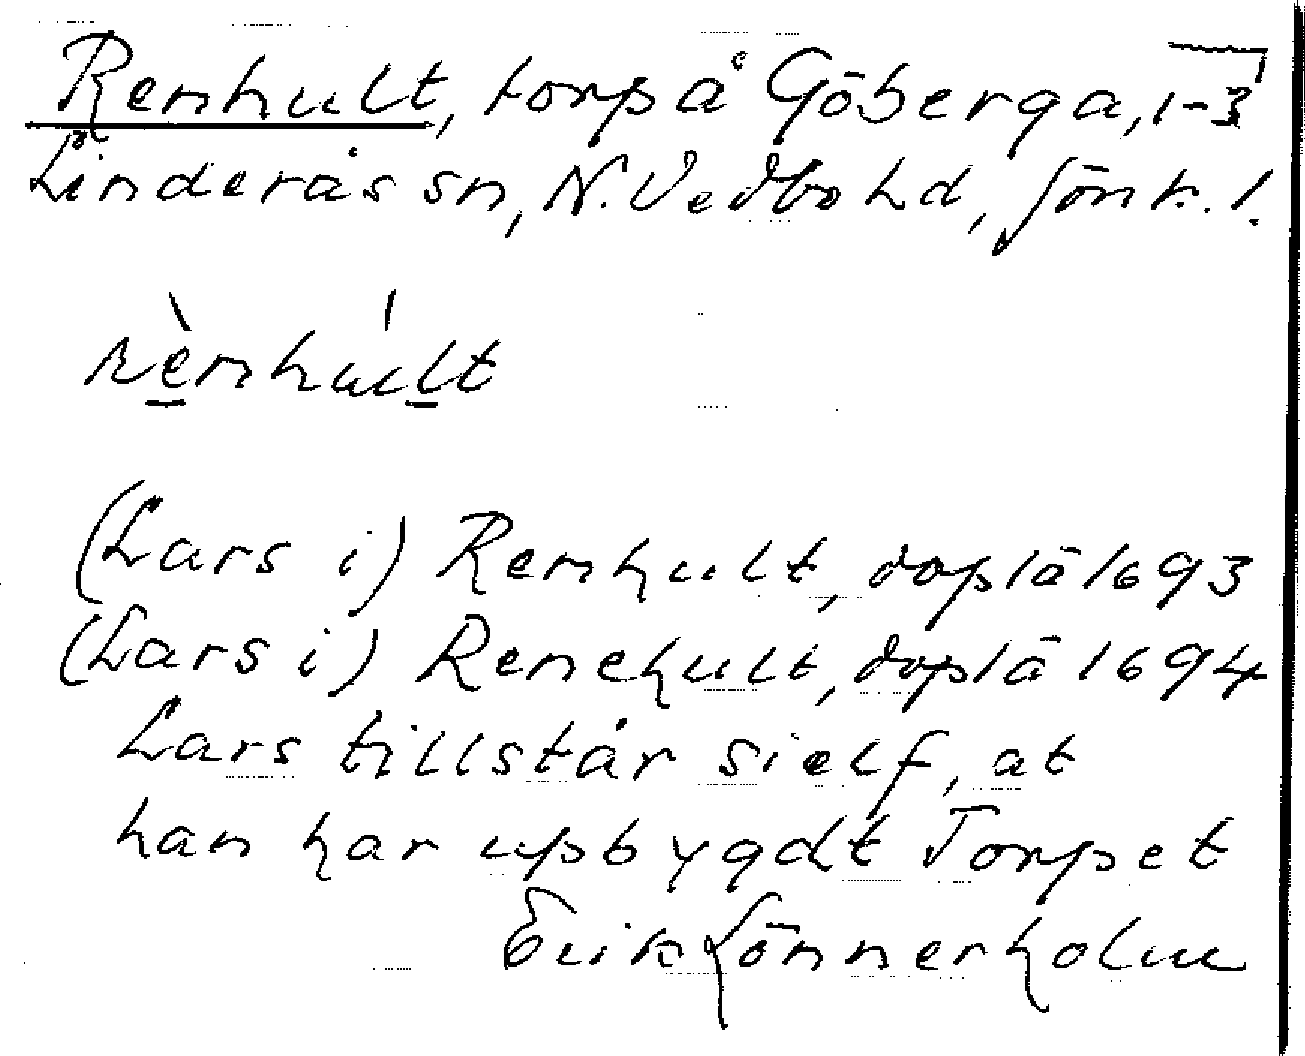 Renhult, torp å Göberga, 1-3
Linderås sn, N. Vedbo hd, Jönk. l.
rènhúlt
(Lars i) Renhult, doplä 1693
(Lars i) Renehult, doplä 1694
Lars tillstår sielf, at
han har upbygdt Torpet
Erik Lönnerholm